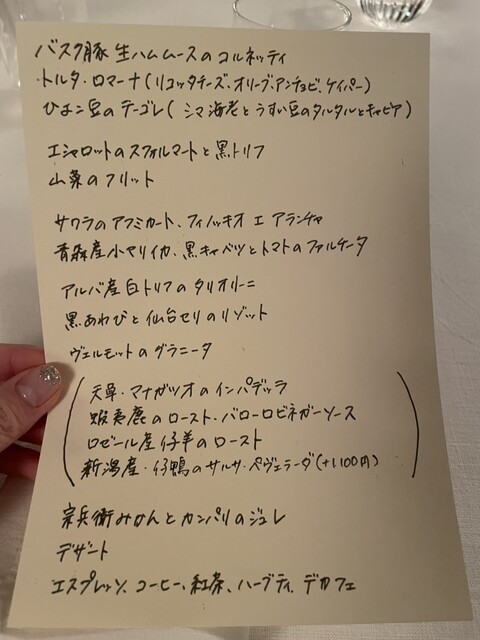 バスク豚 生ハムムースのコルネッティ
トルタ・ロマーナ(リコッタチーズ、オリーブ、アンチョビ、ケイパー)
ひよこ豆のテーゴレ(シマ海老とうすい豆のタルタルとキャビア)
エシャロットのスフォルマートと黒トリフ
山菜のフリット
サワラのアフミカート、フィノッキオ エ アランチャ
青森産小ヤリイカ、黒キャベツとトマトのファルケータ
アルバ産白トリフのタリオリーニ
黒あわびと仙台セリのリゾット
ヴェルモットのグラニータ
天草・マナガツオのインパデッラ
蝦夷鹿のロースト・バローロビネガーソース
ロゼール産仔羊のロースト
新潟産・仔鴨のサルサ・ペヴェラーダ(+1,100円)
宗兵衛みかんとカンパリのジュレ
デザート
エスプレッソ、コーヒー、紅茶、ハーブティ、デカフェ